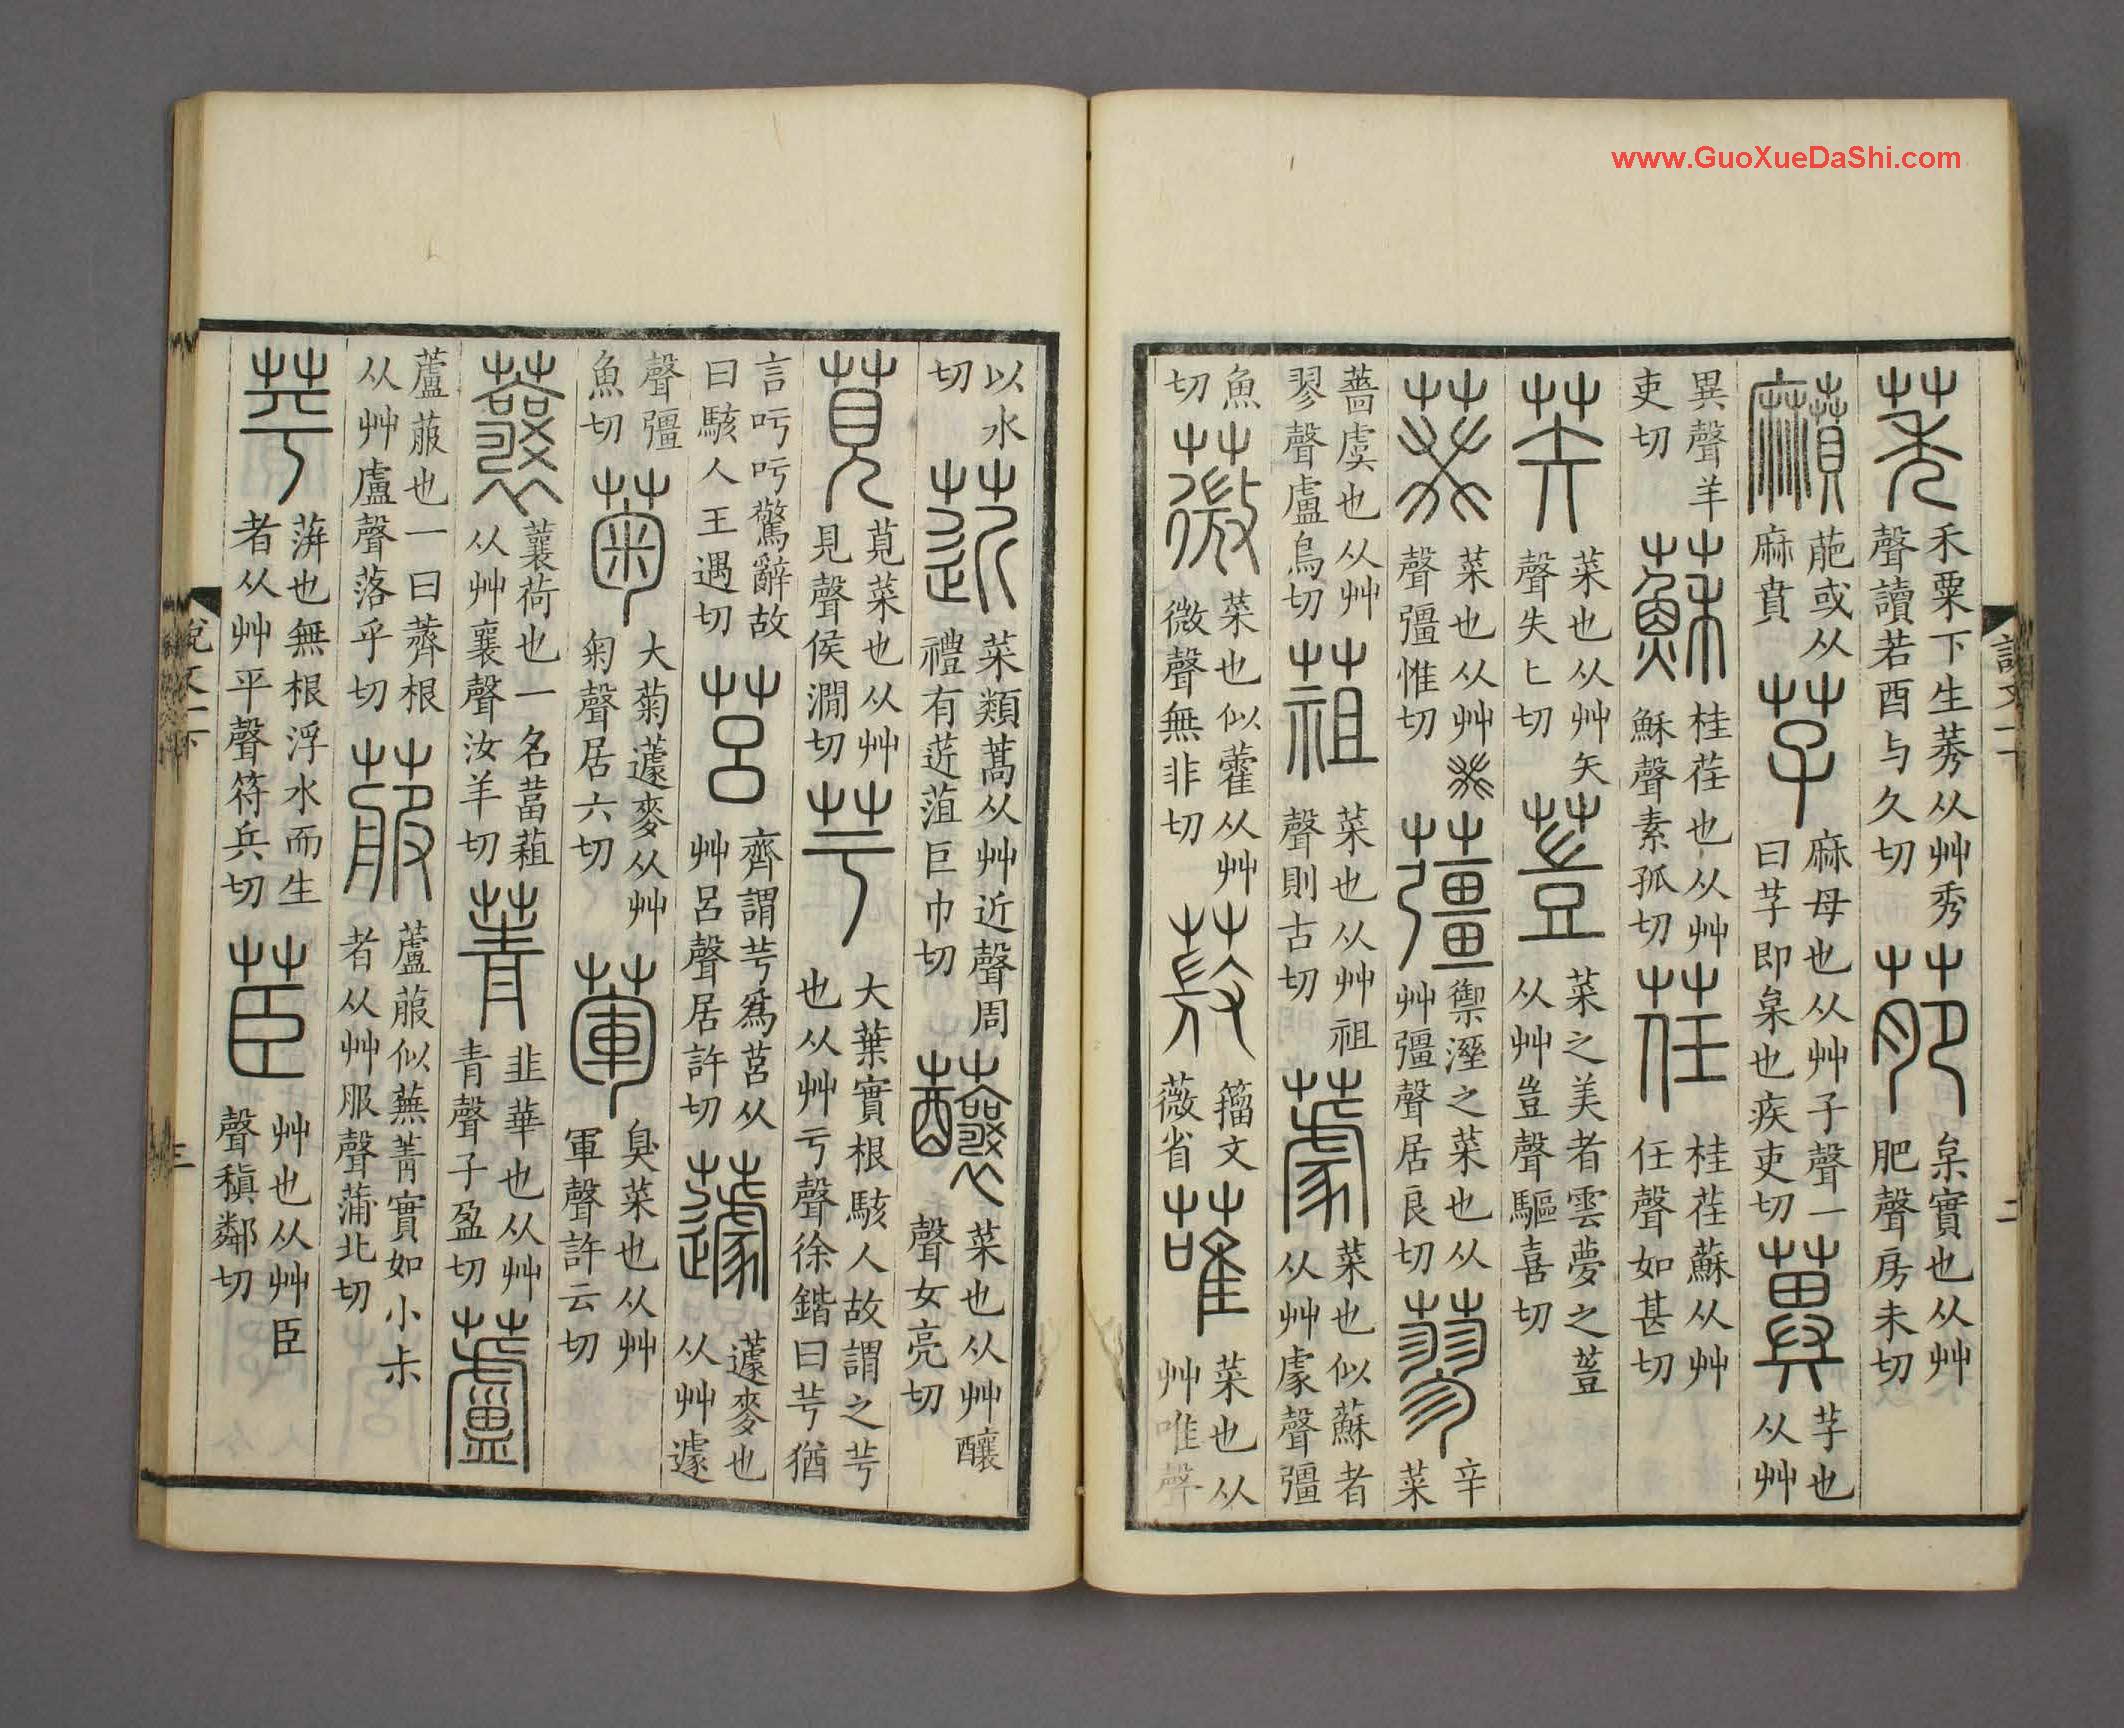 www.GuoXueDaShi.com
莠 禾粟下生莠从艸秀聲讀若酉与久切 萉 枲實也从艸肥聲房未切
萉或从麻賁 芓 麻母也从艸子聲一曰芓即枲也疾吏切 芓也从艸
異聲羊吏切 蘇 桂荏也从艸穌聲素孤切 荏 桂荏蘇从艸任聲如甚切
菜也从艸矢聲失匕切 菜之美者雲夢之䔇从艸豈聲驅喜切
葵 菜也从艸癸聲彊惟切 禦溼之菜也从艸彊聲居良切 蓼 辛菜
薔虞也从艸翏聲盧鳥切 菜也从艸祖聲則古切 菜也似蘇者从艸豦聲彊
魚切 薇 菜也似藿从艸微聲無非切 籒文薇省 蓶 菜也从艸唯聲
說文一下
二
以水切 菦 菜類蒿从艸近聲周禮有菦菹巨巾切 菜也从艸釀聲女亮切
莧 莧菜也从艸見聲侯澗切 芌 大葉實根駭人故謂之芌也从艸亏聲徐鍇曰芌猶
言吁吁驚辭故曰駭人王遇切 莒 齊謂芌爲莒从艸呂聲居許切 蘧 蘧麥也从艸遽
聲彊魚切 菊 大菊蘧麥从艸匊聲居六切 葷 臭菜也从艸軍聲許云切
蘘 蘘荷也一名葍蒩从艸襄聲汝羊切 菁 韭華也从艸青聲子盈切 蘆
蘆菔也一曰薺根从艸盧聲落乎切 菔 蘆菔似蕪菁實如小尗者从艸服聲蒲北切
苹 蓱也無根浮水而生者从艸平聲符兵切 茞 艸也从艸臣聲稹鄰切
說文一下
三